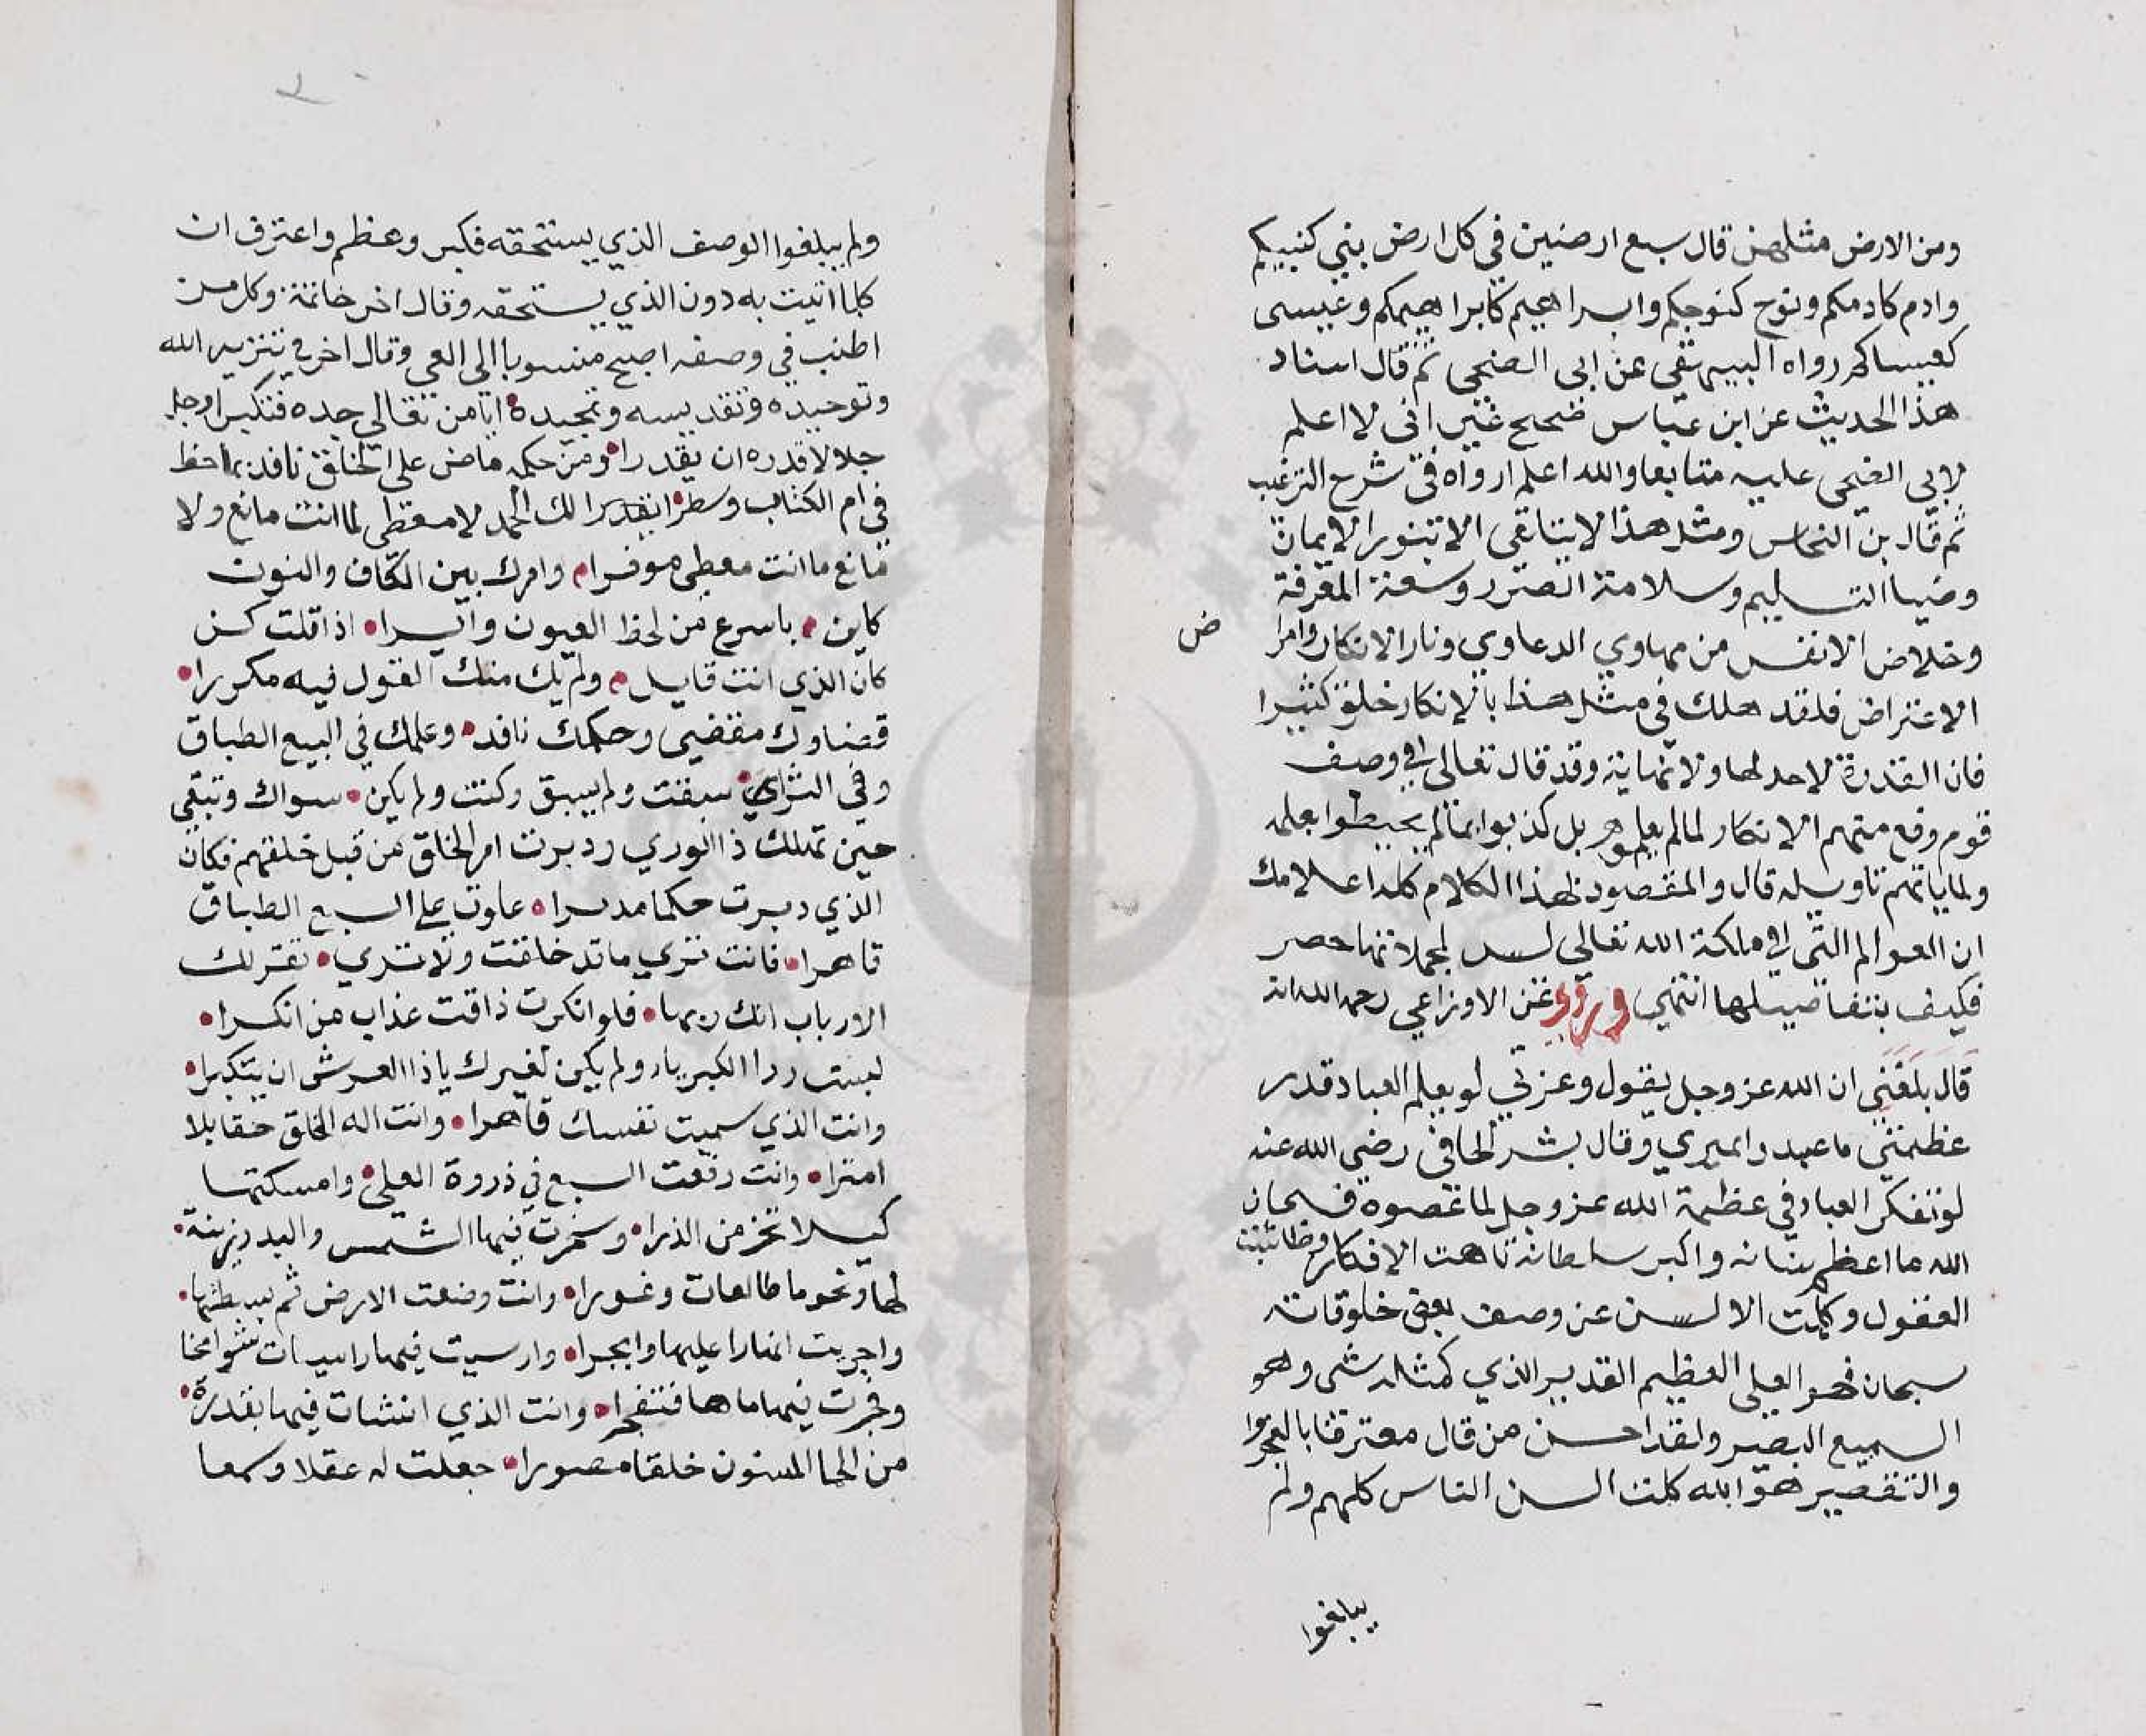 ومن الارض مثلهن قال سبع ارضين في كل ارض بني كنبيكم
وادم كادمكم ونوح كنوحكم وابراهيم كابراهيمكم وعيسى
كعيساكم رواه البيهقي عن ابي الضحى ثم قال اسناد
هذا الحديث عن ابن عباس صحيح غير اني لا اعلم
لابي الضحى عليه متابعا والله اعلم رواه في شرح الترغيب
ثم قال بن النحاس ومثل هذا لا يتلقى الا بتنوير الايمان
وضيا التسليم وسلامة الصدر وسعة المعرفة
وخلاص الانفس من مهاوي الدعاوي ونار الانكار وامرا
ض
الاعتراض فلقد هلك في مثل هذا بالانكار خلق كثيرا
فان القدرة لا حد لها ولا نهاية وقد قال تعالى في وصف
قوم وقع منهم الانكار لما لم يعلموه بل كذبوا بما لم يحيطوا بعلمه
ولما ياتهم تاويله قال والمقصود بهذا الكلام كله اعلامك
ان العوالم التي في ملكة الله تعالى ليس لجملاتها حصر
فكيف بتفاصيلها انتهي وروي عن الاوزاعي رحمه الله انه
قال بلغني ان الله عز وجل يقول وعزتي لو يعلم العباد قدر
عظمتي ما عبدوا غيري وقال بشر الحافي رضي الله عنه
لو تفكر العباد في عظمة الله عز وجل لما عصوه فسبحان
الله ما اعظم شانه واكبر سلطانه تاهت الافكار وطاشت
العقول وكلت الالسن عن وصف بعض مخلوقاته
سبحان فهو العلي العظيم القدير الذي كمثله شي وهو
السميع البصير ولقد احسن من قال معترفا بالعجز
والتقصير هو الله كلت السن الناس كلهم ولم
يبلغوا
ولم يبلغوا الوصف الذي يستحقه فكبر وعظم واعترف ان
كلما اتيت به دون الذي يستحقه وقال اخر خاتمة وكل من
اطنب في وصفه اصبح منسوبا الى العي وقال اخر في تنزيه الله
وتوحيده وتقديسه وتمجيده ايا من تعالى جده فتكبرا وجل
جلالا قدره ان يقدرا ومن حكمه ماض على الخلق نافد بما خط
في ام الكتاب وسطرا لك الحمد لا معطي لما انت مانع ولا
مانع ما انت معطي موفرا وامرك بين الكاف والنون
كاين باسرع من لحظ العيون وايسرا اذا قلت كن
كان الذي انت قايل ولم يك منك القول فيه مكررا
قضاوك مقضي وحكمك نافد وعلمك في السبع الطباق
وفي الثرى سبقت ولم يسبق وكنت ولم يكن سواك وتبقى
حين تهلك ذا الوري ردبرت امر الخلق من قبل خلقهم فكان
الذي دبرت حكما مدبرا علوت على السبع الطباق
قاهرا فانت تري ما قد خلقت ولا تري تقر لك
الارباب انك ربها فلو انكرت ذاقت عذاب من انكرا
لبست ردا الكبريا ولم يكن لغيرك يا ذا العرش ان يتكبرا
وانت الذي سميت نفسك قاهرا وانت اله الخلق حقا بلا
امترا وانت رفعت السبع في ذروة العلى وامسكتها
كيلا تخر من الذرا وسخرت فيها الشمس والبدر زينة
لها ونحوما طالعات وغورا وانت وضعت الارض ثم بسطتها
واجريت انهارا عليها وابحرا وارسيت فيها راسيات شوامخا
وفجرت فيها ماها فتفجرا وانت الذي انشات فيها بقدرة
من الحما المسنون خلقا مصورا جعلت له عقلا وسمعا